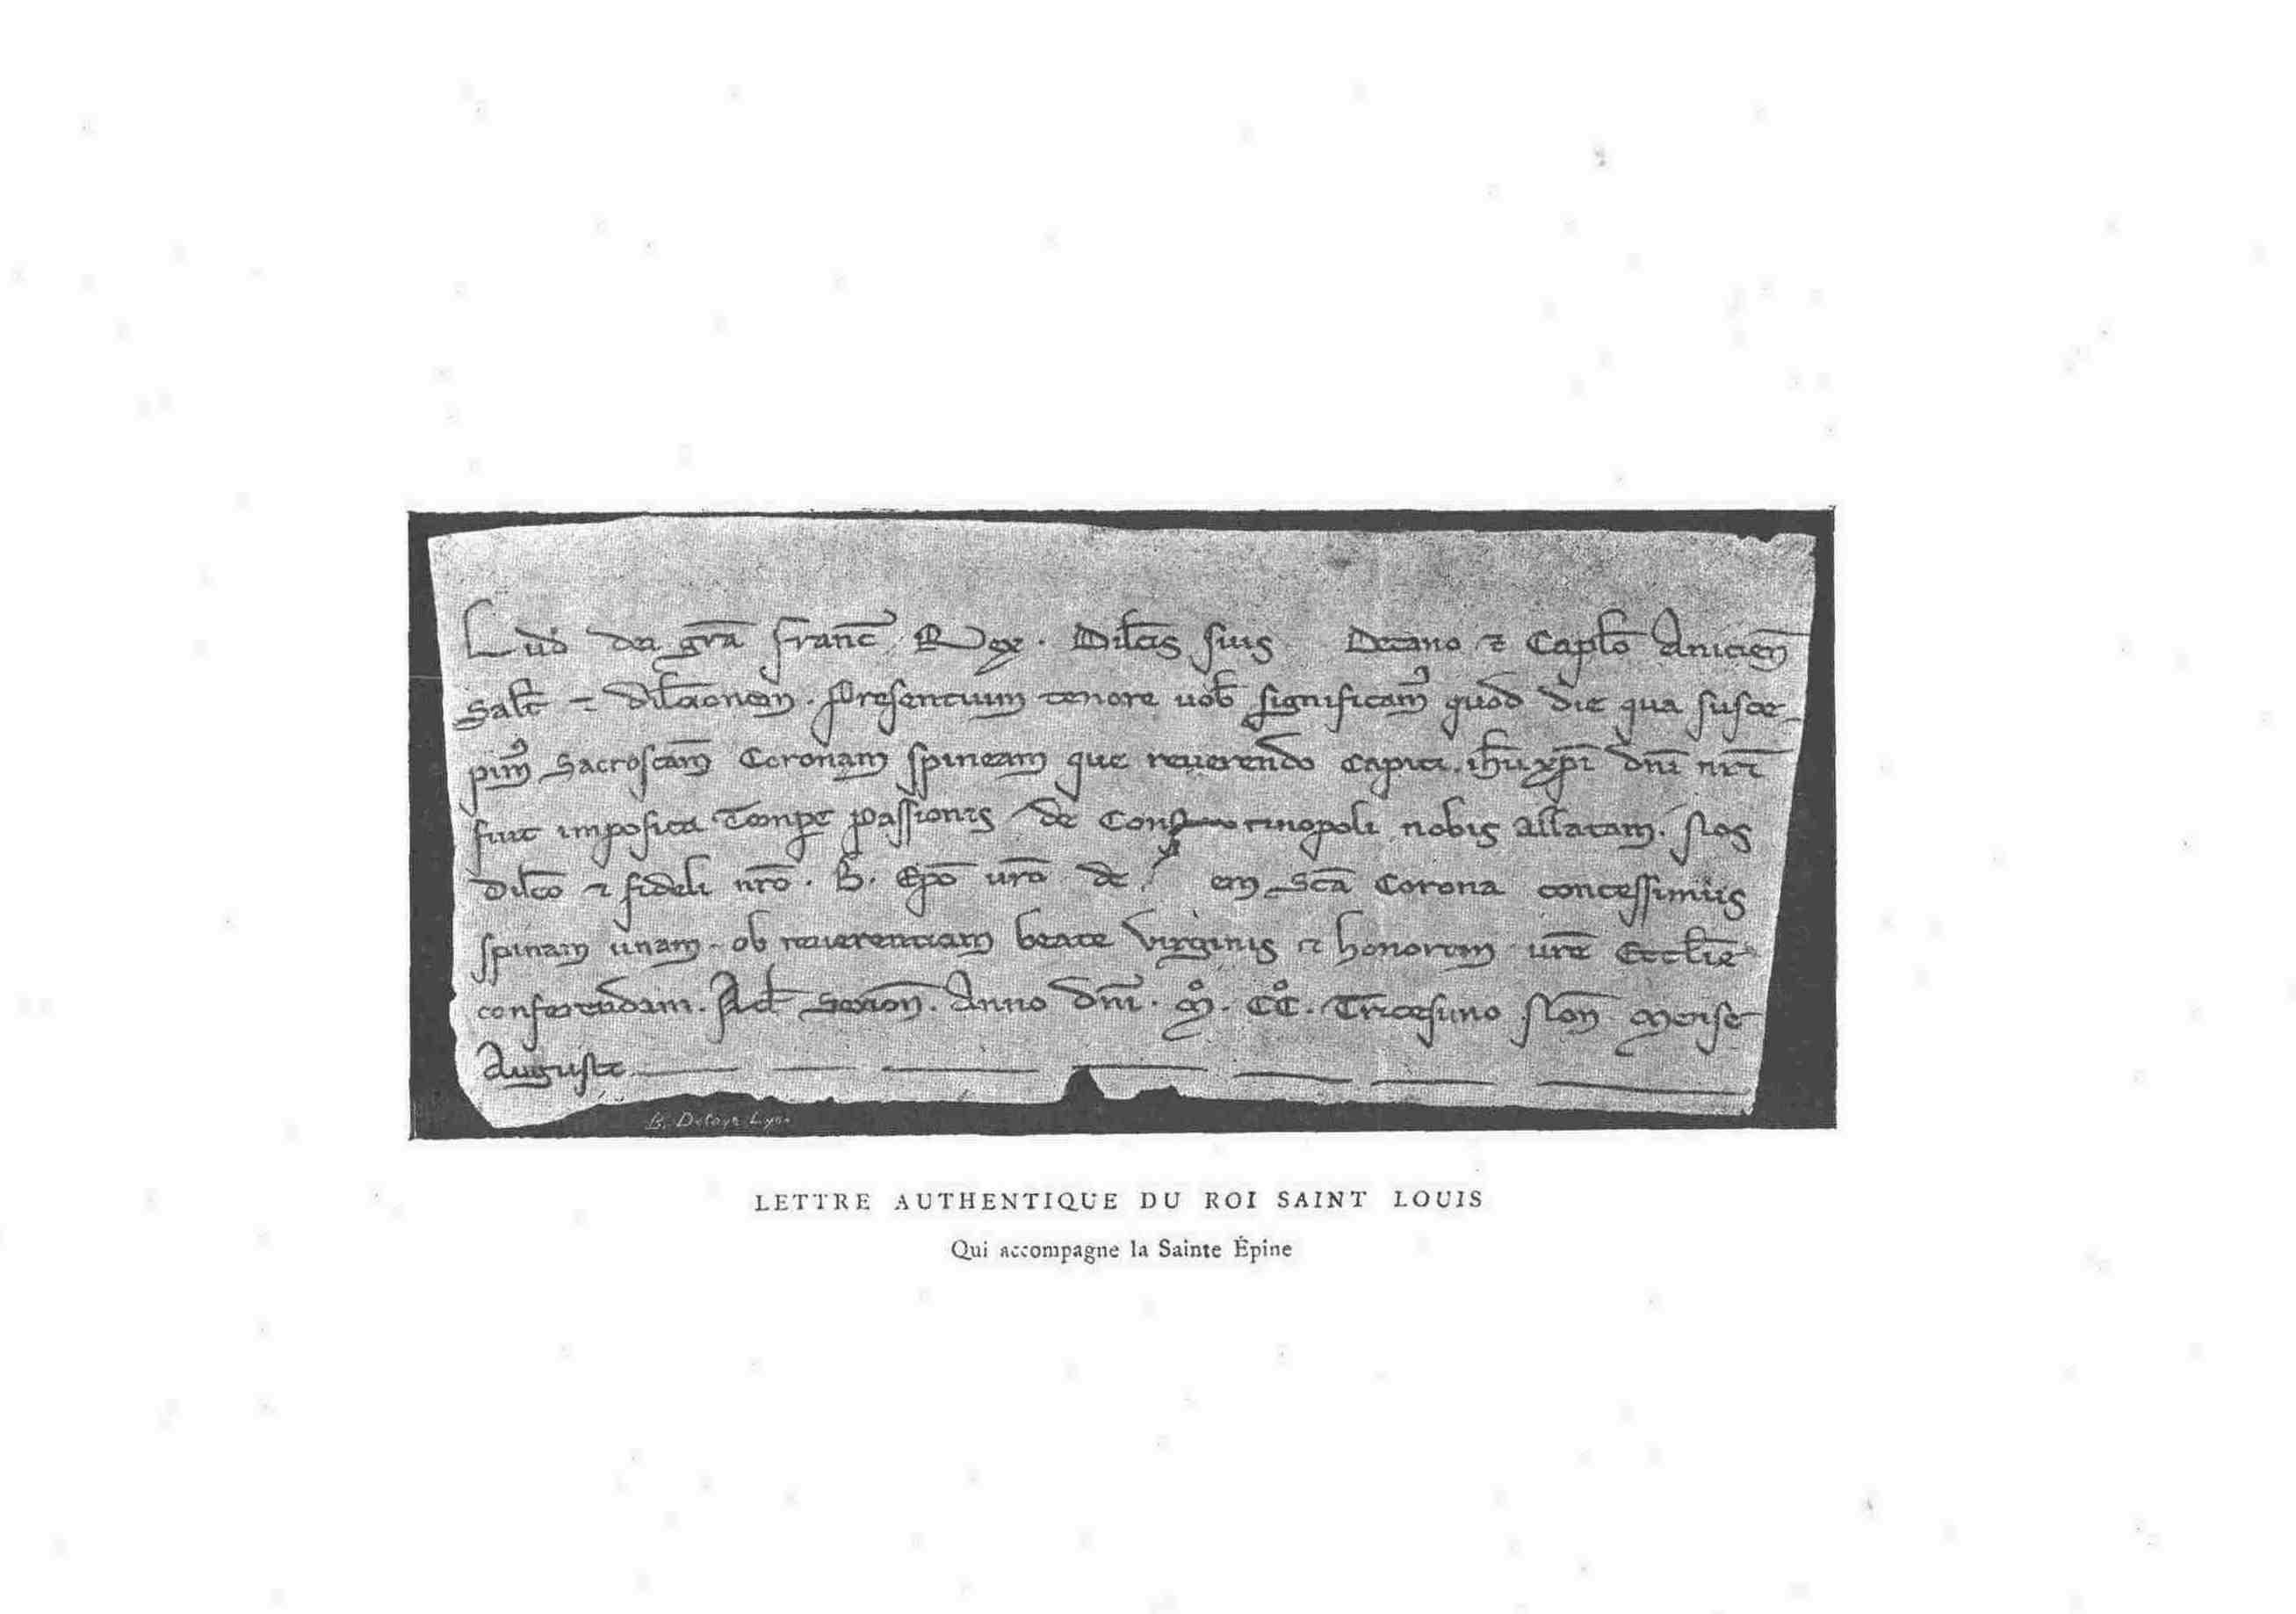 Lud dei gra franc Rex. Dilcis suis Decano ⁊ Caplo Anicien
Salt ⁊ dilcionem. Presentium tenore uob significam⁹ quod die qua susce-
pim⁹ Sacroscam Coronam spineam que reuerendo capiti ihu xpi dni nri
fuit imposita Tempe passionis de Cons tinopoli nobis allatam. Nos
Dilco ⁊ fideli nro. B. Epo uro de em Sca Corona concessimus
spinam unam ob reuerentiam beate Virginis ⁊ honorem ure Ecclie
conferendam. Act Senon. Anno dni. M°. CC°. Tricesimo Non mense
Auguste
B. Delaye Lyon
LETTRE AUTHENTIQUE DU ROI SAINT LOUIS
Qui accompagne la Sainte Épine